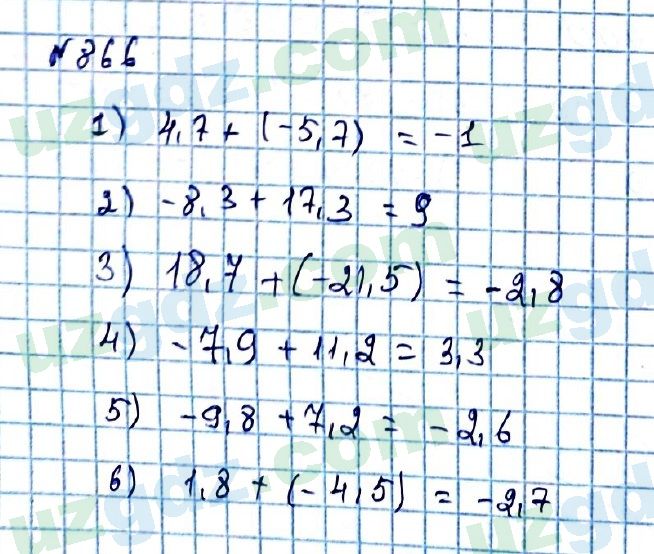 № 366
1) 4,7 + (-5,7) = -1
2) -8,3 + 17,3 = 9
3) 18,7 + (-21,5) = -2,8
4) -7,9 + 11,2 = 3,3
5) -9,8 + 7,2 = -2,6
6) 1,8 + (-4,5) = -2,7
uzgdz.com